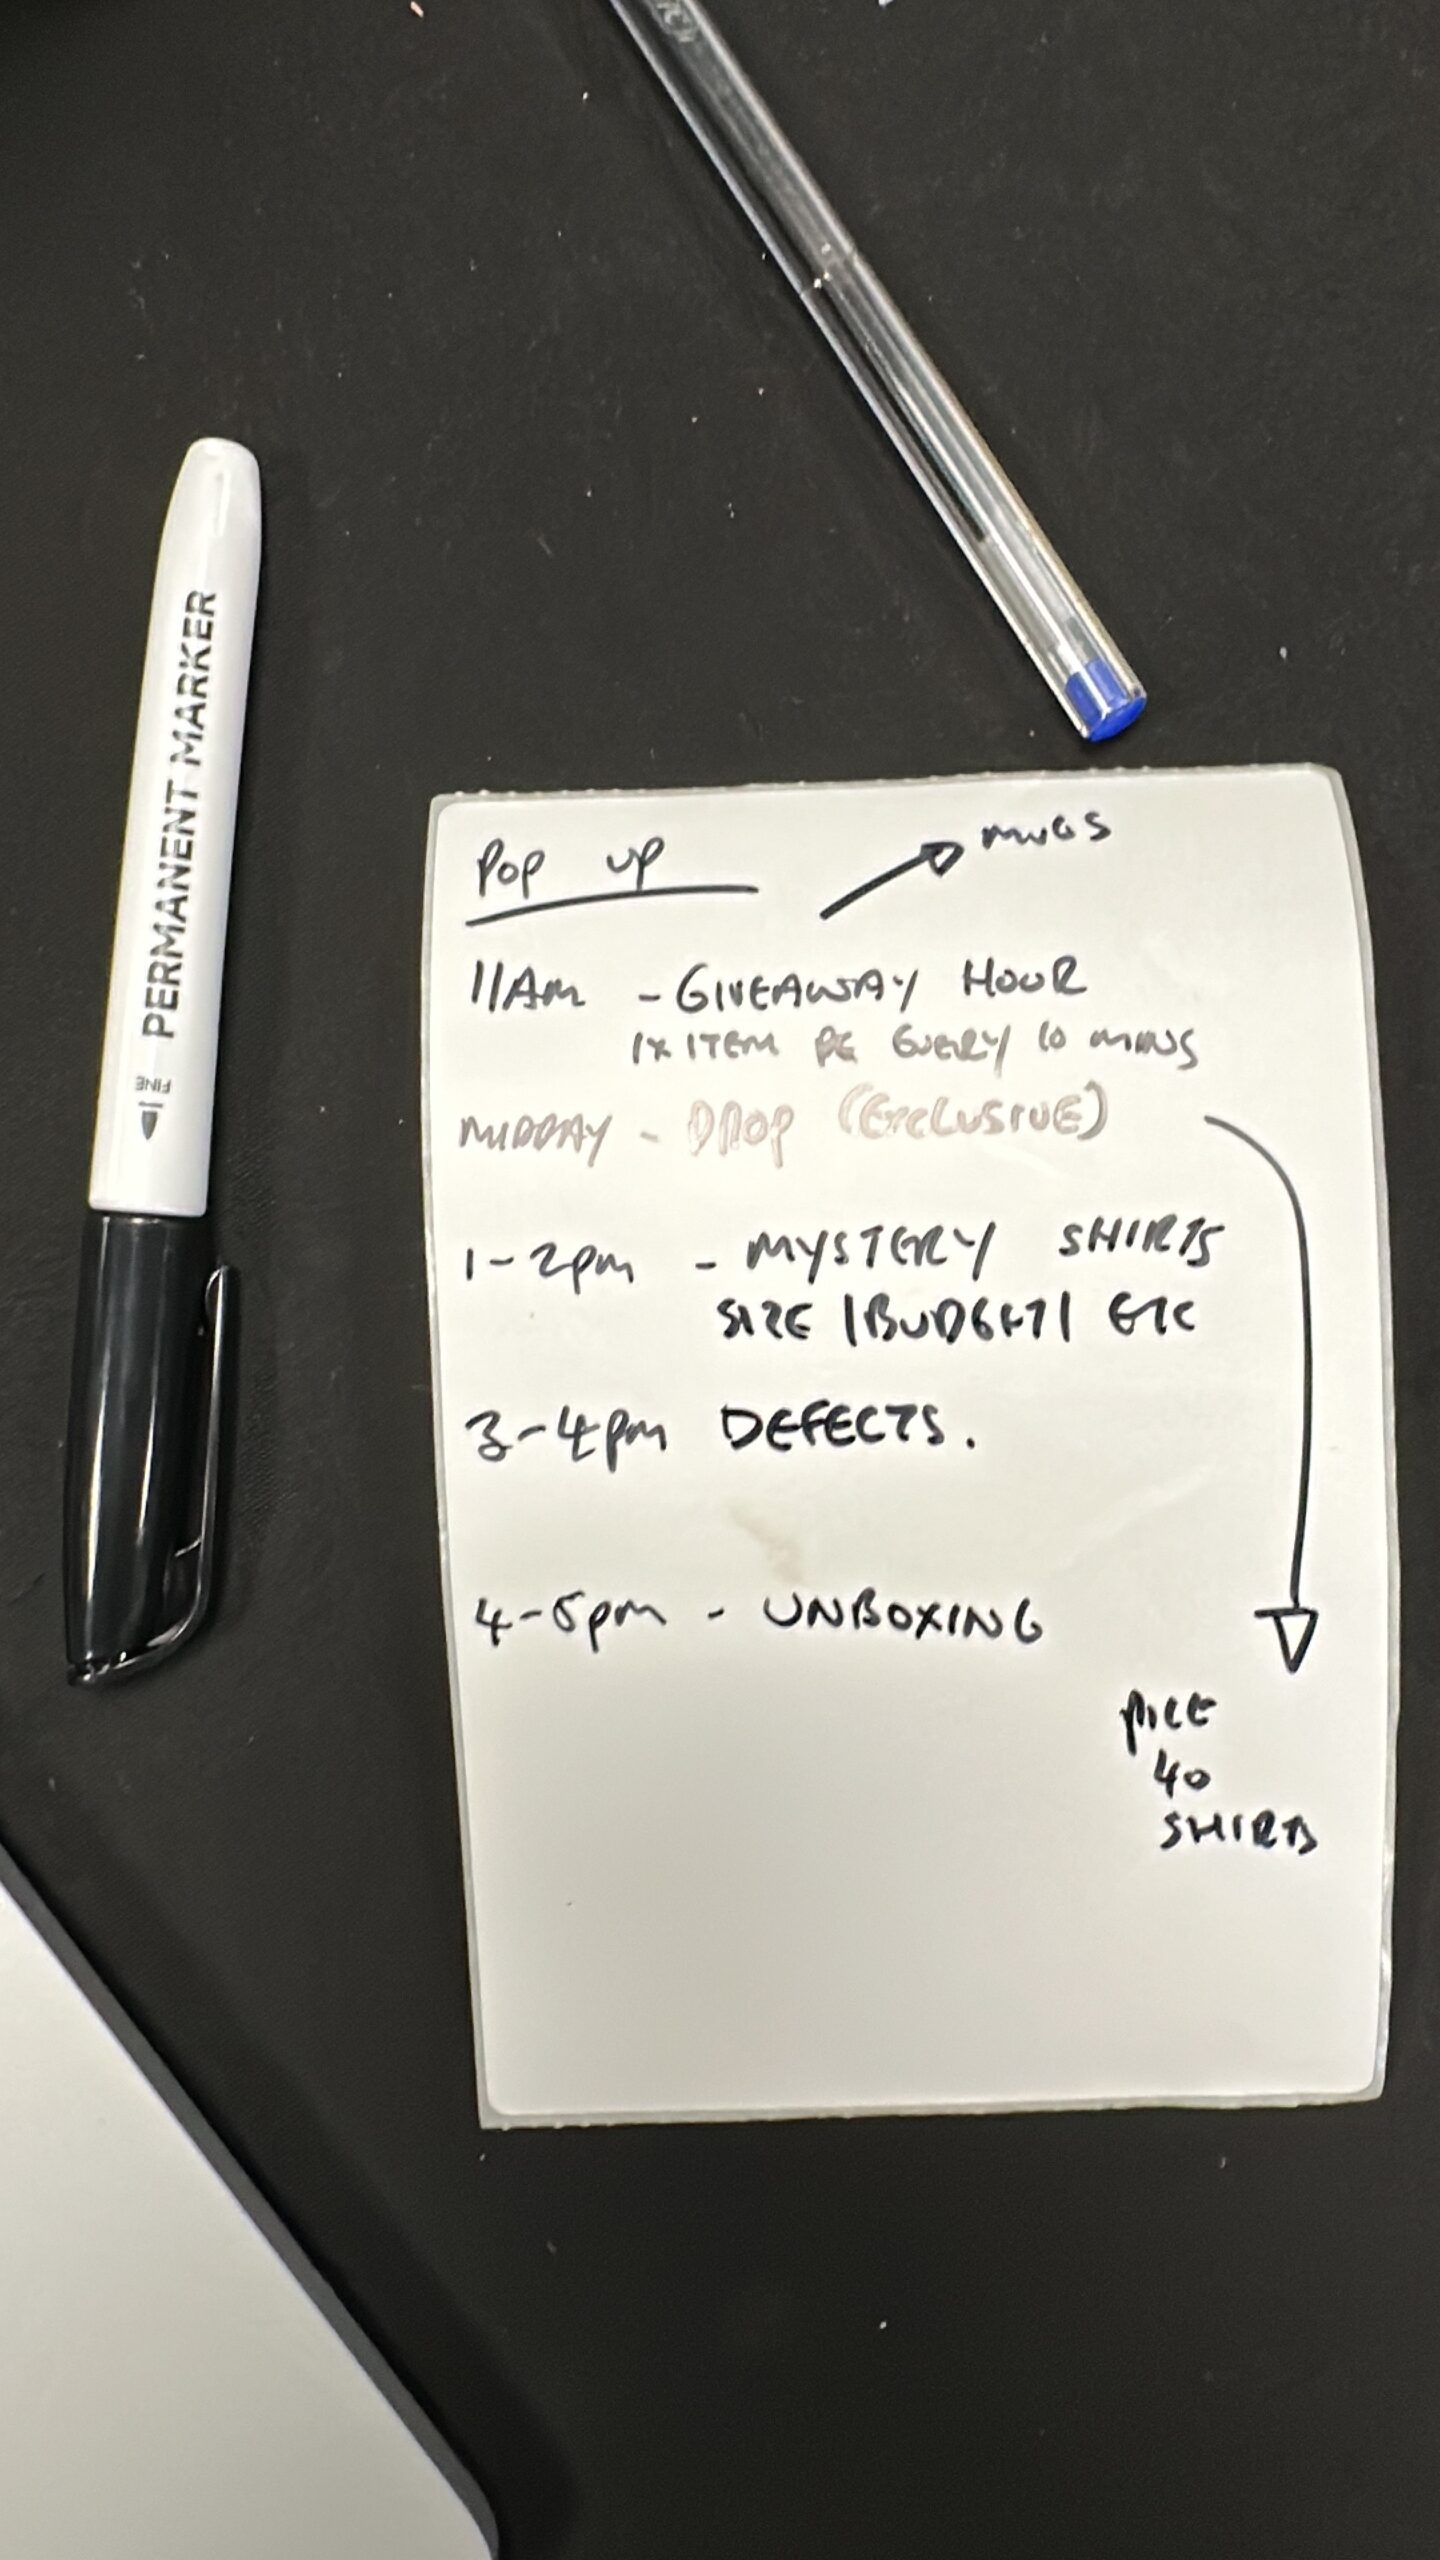 PERMANENT MARKER
FINE
Pop up
MUGS
11AM - GIVEAWAY HOUR
1x ITEM EVERY 10 MINS
MIDDAY - DROP (EXCLUSIVE)
1-2pm - MYSTERY SHIRTS
SIZE | BUDGET | ETC
3-4pm DEFECTS.
4-5pm - UNBOXING
40
SHIRTS